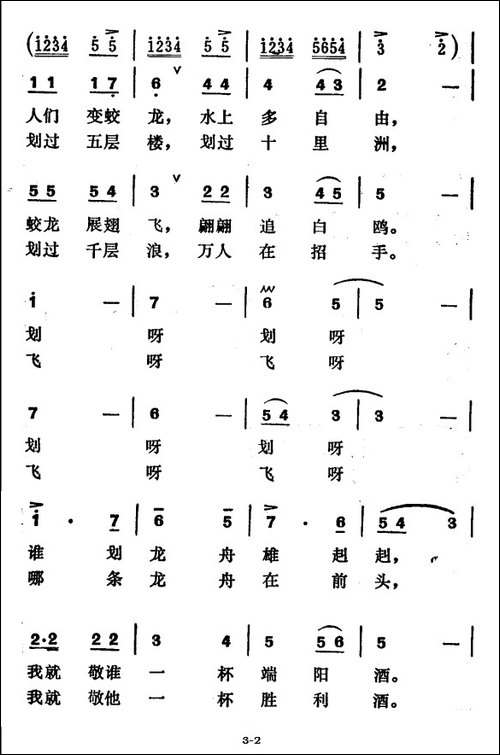 (1234 5 5 | 1234 5 5 | 1234 5654 | 3 2 )
1 1 1 7 | 6 4 4 | 4 4 3 | 2 — |
人们 变蛟 龙, 水上 多 自 由,
划过 五层 楼, 划过 十 里 洲,
5 5 5 4 | 3 2 2 | 3 4 5 | 5 — |
蛟龙 展翅 飞, 翩翩 追 白 鸥。
划过 千层 浪, 万人 在 招 手。
1 — | 7 — | 6 5 | 5 — |
划 呀 划 呀
飞 呀 飞 呀
7 — | 6 — | 5 4 3 | 3 — |
划 呀 划 呀
飞 呀 飞 呀
1 · 7 | 6 5 | 7 · 6 | 5 4 3 |
谁 划 龙 舟 雄 赳 赳,
哪 条 龙 舟 在 前 头,
2·2 2 2 | 3 4 | 5 5 6 | 5 — |
我就 敬谁 一 杯 端 阳 酒。
我就 敬他 一 杯 胜 利 酒。
3-2